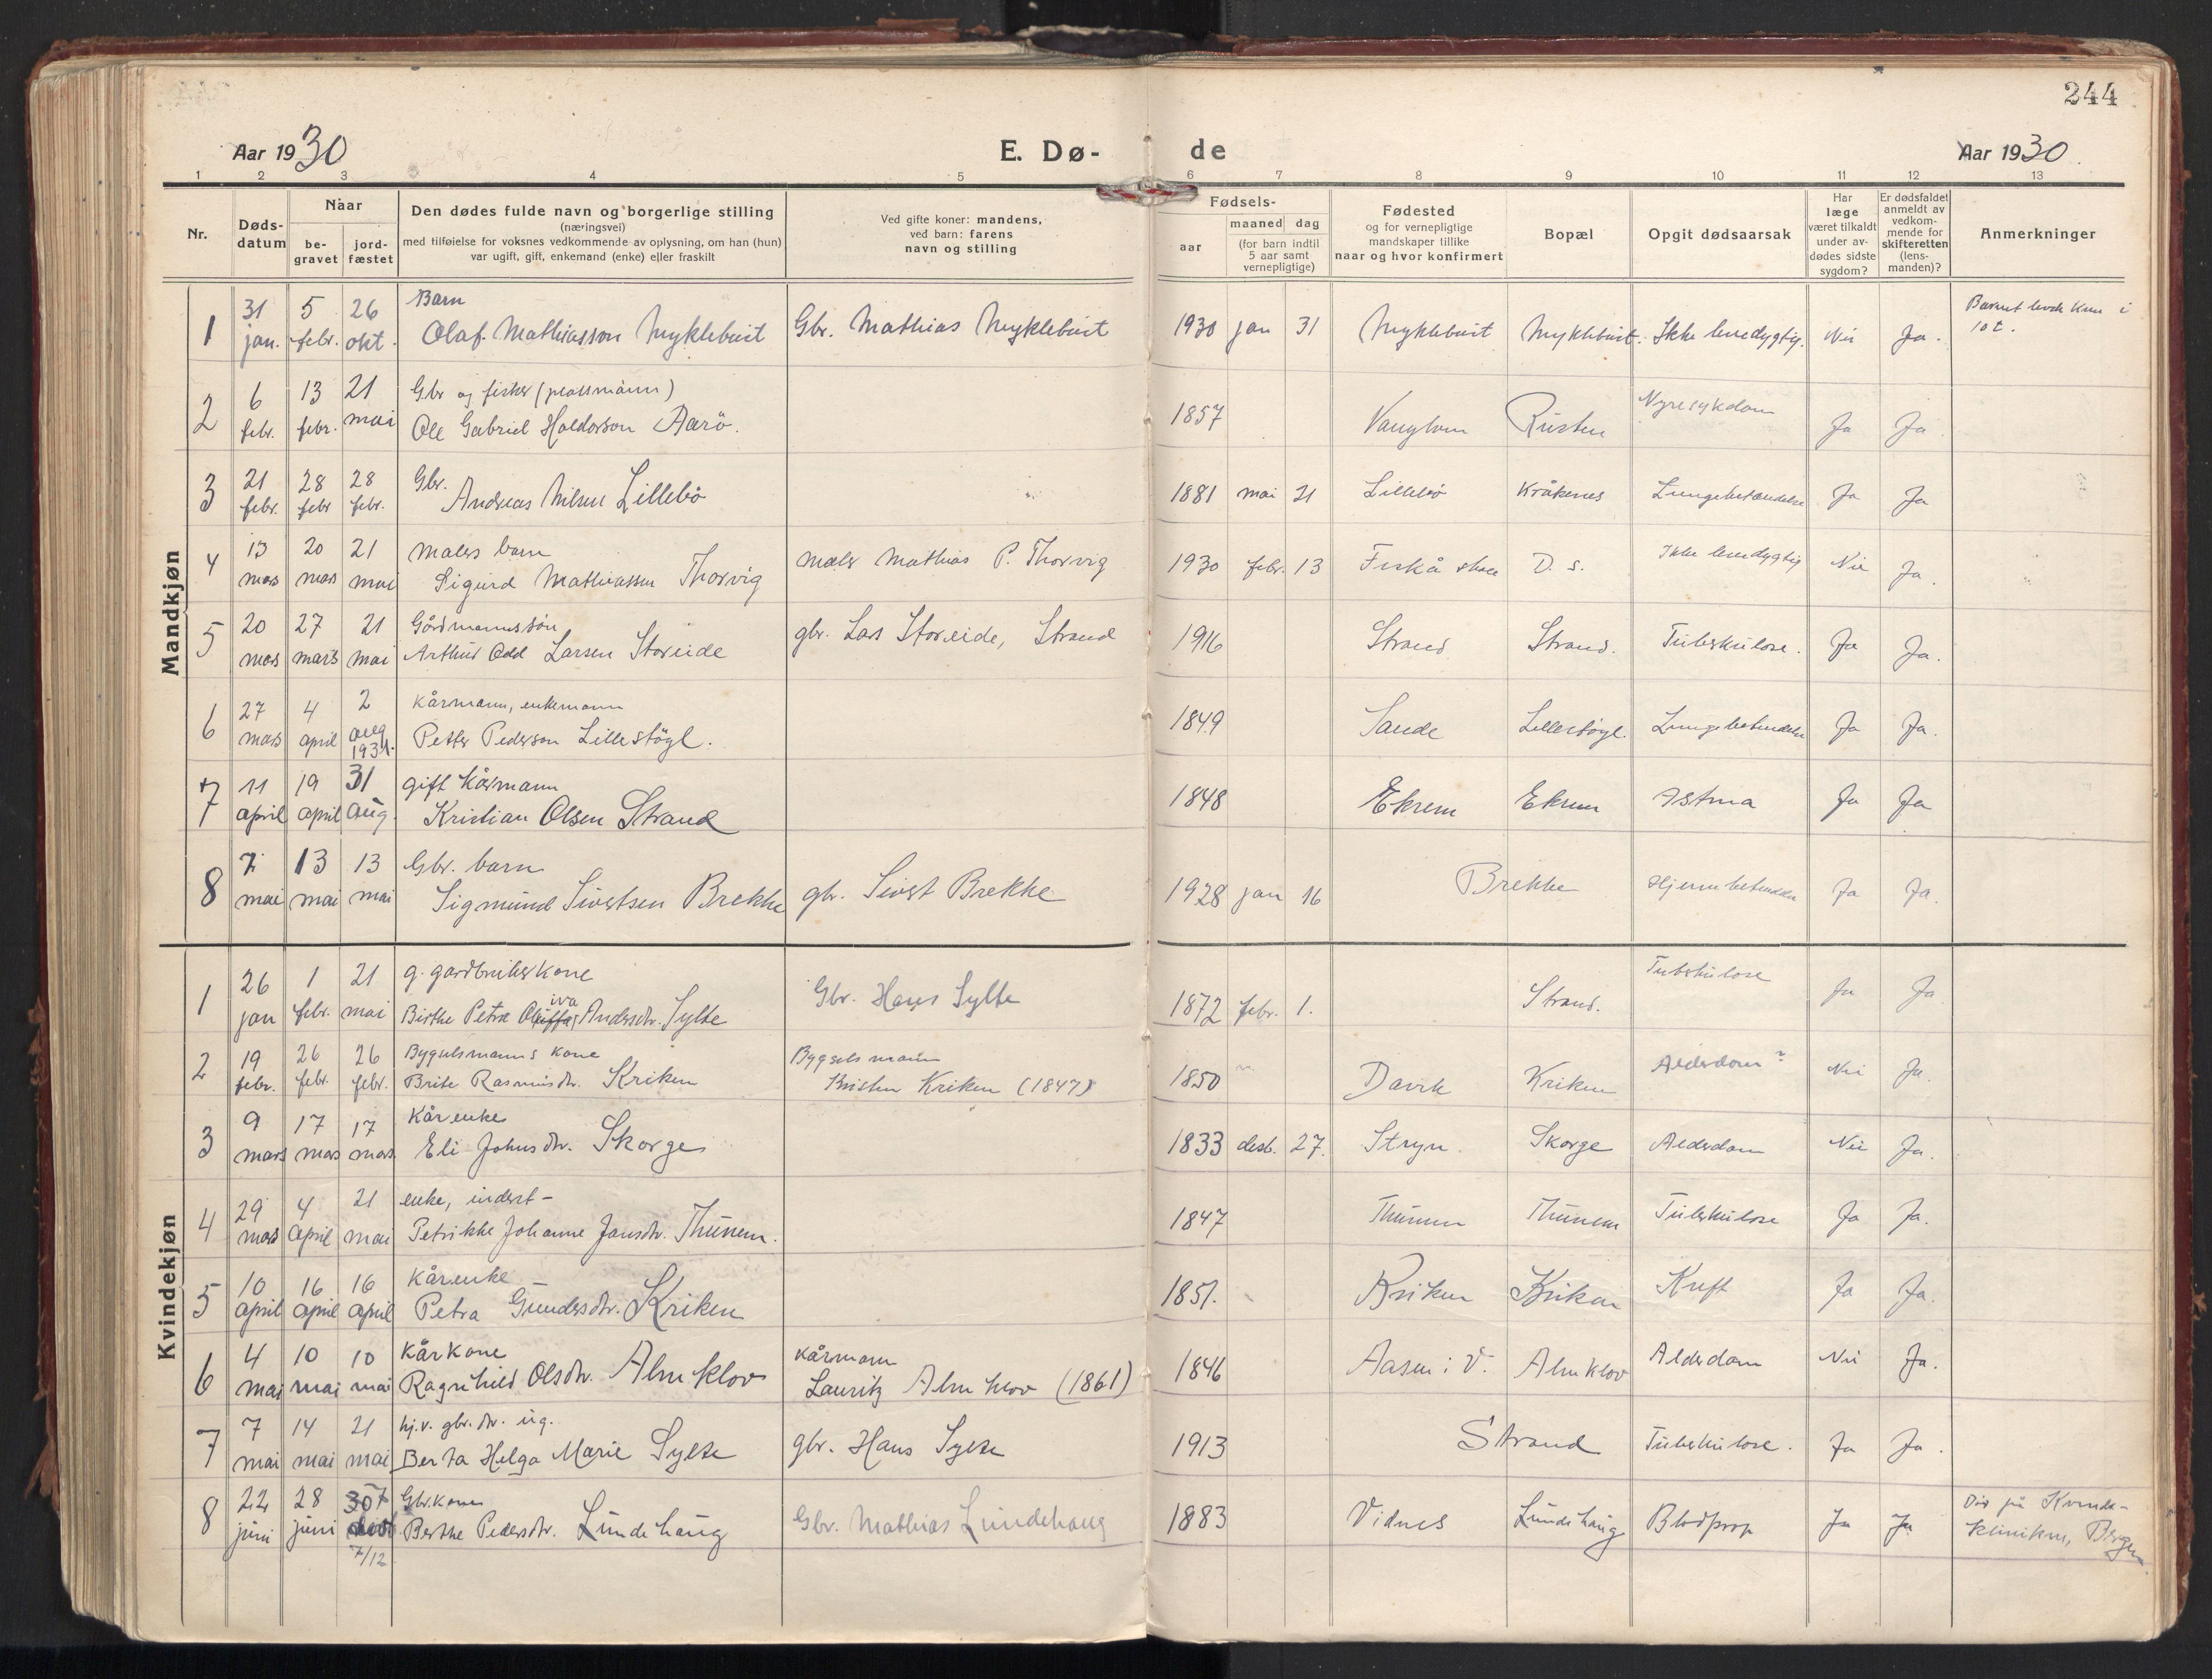 244
Aar 1930
E. Dø-
de
Aar 1930.
1 2 3 4 5 6 7 8 9 10 11 12 13
Nr.
Døds-
datum
Naar
be-
gravet
jord-
fæstet
Den dødes fulde navn og borgerlige stilling
(næringsvei)
med tilføielse for voksnes vedkommende av oplysning, om han (hun)
var ugift, gift, enkemand (enke) eller fraskilt
Ved gifte koner: mandens,
ved barn: farens
navn og stilling
Fødsels-
aar
maaned
dag
(for barn indtil
5 aar samt
vernepligtige)
Fødested
og for vernepligtige
mandskaper tillike
naar og hvor konfirmert
Bopæl
Opgit dødsaarsak
Har
læge
været tilkaldt
under av-
dødes sidste
sygdom?
Er dødsfaldet
anmeldt av
vedkom-
mende for
skifteretten
(lens-
manden)?
Anmerkninger
Mandkjøn
31 5 26 Barn Barnet levde kun i
1 jan. febr. okt. Olaf Mathiasson Myklebust Gbr. Mathias Myklebust 1930 jan 31 Myklebust Myklebust. Ikke levedygtig. Nei Ja. 10 t.
6 13 21 Gbr og fisker (plassmann)
2 febr. febr. mai Ole Gabriel Haldorson Aarö. 1857 Rusten Nyresykdom Ja Ja
21 28 28 Gbr.
3 febr. febr febr. Andreas Nilsen Lillebö 1881 mai 21 Lillebö Kråkenes Lungebetændelse Ja Ja
13 20 21 malers barn
4 mars mars mai Sigurd Mathiassen Thorvig maler Mathias P. Thorvig 1930 febr. 13 Fiskå D. s. Ikke levedygtig Nei Ja.
20 27 21 Gårdmannssön
5 mars mars mai Arthur Odd Larsen Storeide gbr. Lars Storeide, Strand 1916 Strand Strand. Tuberkulose. Ja Ja.
27 4 2 Kårmann, enkemann
6 mars april aug 1931. Petter Pederson Lillestögl. 1849 Sande Lillestögl. Lungebetendelse Ja Ja.
11 19 31 gift kårmann
7 april april aug. Kristian Olsen Strand 1848 Ekrem Ekrem Astma Ja Ja
7. 13 13 Gbr. barn
8 mai mai mai Sigmund Sivertsen Brekke gbr. Sivert Brekke 1928 jan 16 Brekke Hjernebetendelse Ja Ja.
Kvindekjøn
26 1 21 g. gardbrukerkone
1 jan febr. mai Birthe Petra Oliva Andersdtr. Sylte Gbr. Hans Sylte 1872 febr. 1. Strand. Tuberkulose Ja Ja
19 26 26 Bygselsmanns kone Bygselsmann
2 febr. febr. febr. Brite Rasmusdtr. Kriken Kristen Kriken (1847) 1850 Davik Kriken Alderdom? Nei Ja.
9 17 17 Kårenke
3 mars mars mars Eli Johnsdtr. Skorge 1833 desb. 27. Stryn. Skorge Alderdom Nei Ja.
29 4 21 enke, inderst-
4 mars April mai Petrikke Johanne Jansdtr. Thunem. 1847 Thunem Thunem Tuberkulose Ja Ja.
10 16 16 Kårenke
5 april april april Petra Gundersdtr. Kriken 1851. Kriken Kriken Kreft Ja Ja.
4 10 10 Kårkone Kårmann
6 mai mai mai Ragnhild Olsdtr. Almklov Lauritz Almklov (1861) 1846 Aasen i V. Almklov Alderdom Nei Ja.
7 14 21 hj.v. gbr. dtr. ug.
7 mai mai mai Berta Helga Marie Sylte gbr. Hans Sylte 1913 Strand Tuberkulose. Ja Ja.
22 28 30 Gbr.kone Död på Kvinde-
8 juni juni 7/12 Berthe Pedersdtr. Lundehaug Gbr. Mathias Lundehaug 1883 Vidnes Lundehaug Blodprop Ja Ja klinikken, Bergen